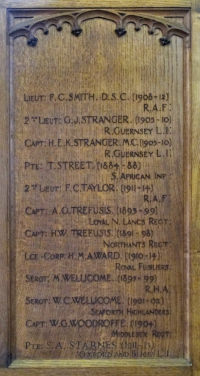 LIEUT: F.C. SMITH. D.S.C. (1908-12)
R.A.F.
2ND LIEUT: G.J. STRANGER. (1905-10)
R. GUERNSEY L.I.
CAPT: H.E.K. STRANGER. M.C. (1905-10)
R. GUERNSEY L.I.
PTE: T. STREET. (1884-88)
S. AFRICAN INF
2ND LIEUT: F.C. TAYLOR. (1911-14)
R.A.F.
CAPT: A.O. TREFUSIS. (1893-99)
LOYAL N. LANCS REGT.
CAPT: H.W. TREFUSIS. (1891-98)
NORTHANTS REGT.
LCE-CORP. H.M.A. WARD. (1910-14)
ROYAL FUSILIERS.
SERGT. M. WELLICOME. (1891-99)
R.H.A.
SERGT: W.C. WELLICOME. (1901-02)
SEAFORTH HIGHLANDERS.
CAPT: W.G. WOODROFFE. (1904)
MIDDLESEX REGT.
PTE: S.A. STARNES.
OXFORD AND BUCKS L.I.